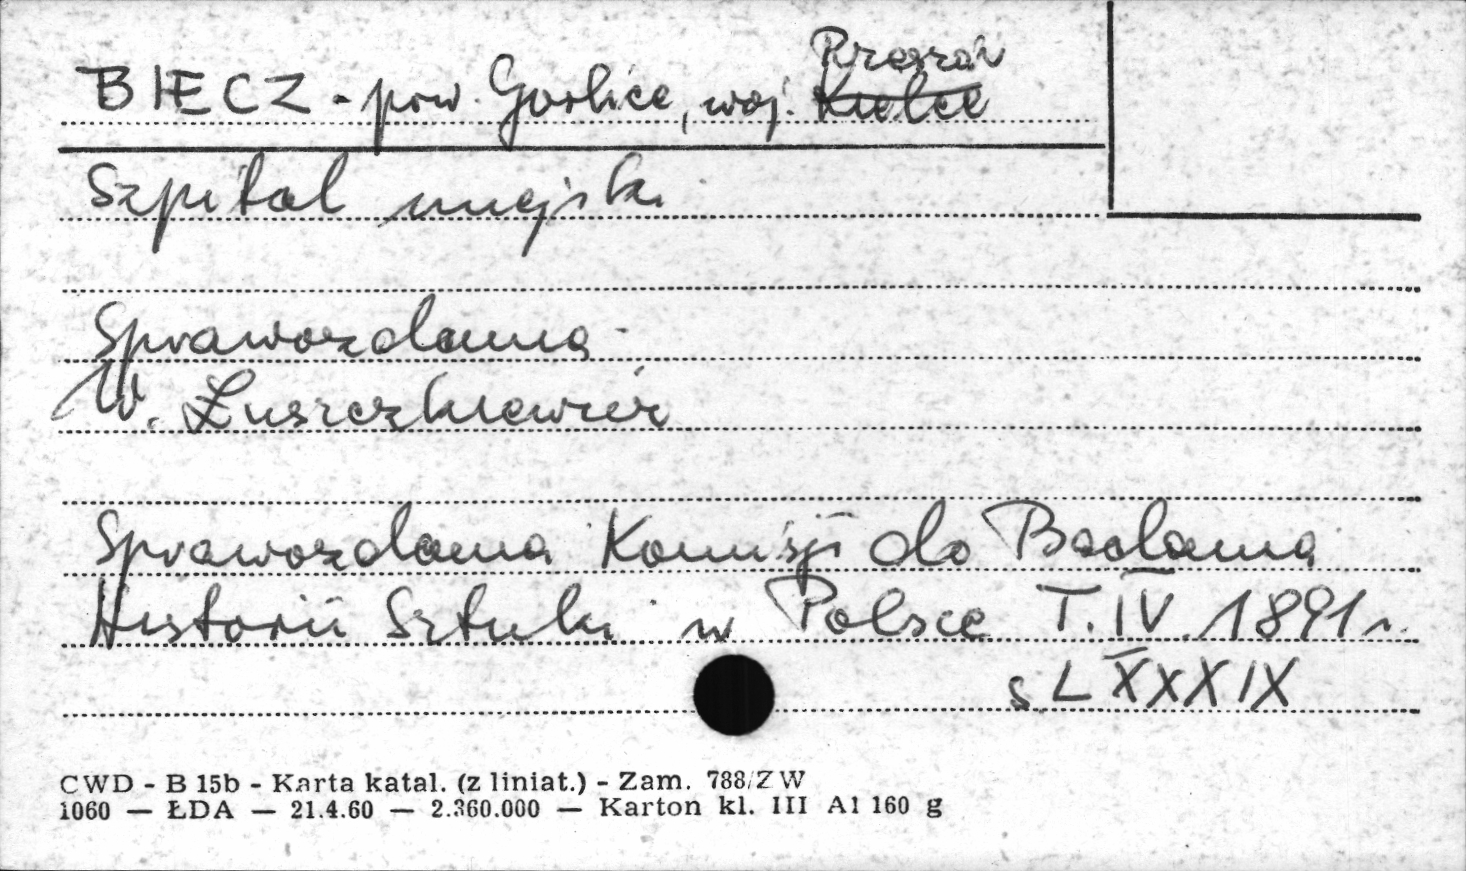 BIECZ - pow. Gorlice, woj. Kielce Rzeszów
Szpital miejski
Sprawozdania
W. Łuszczkiewicz
Sprawozdania Komisji do Badania
Historii Sztuki w Polsce T. IV. 1891 r.
s LXXXIX
CWD - B 15b - Karta katal. (z liniat.) - Zam. 788/ZW
1060 — ŁDA — 21.4.60 — 2.360.000 — Karton kl. III A1 160 g